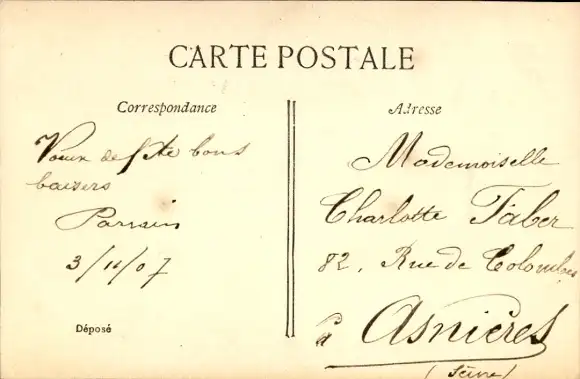 CARTE POSTALE
Correspondance
Voeux de fête bons
baisers
Parrain
3/11/07
Déposé
Adresse
Mademoiselle
Charlotte Faber
82, Rue de Colombes
à Asnières
(Seine)